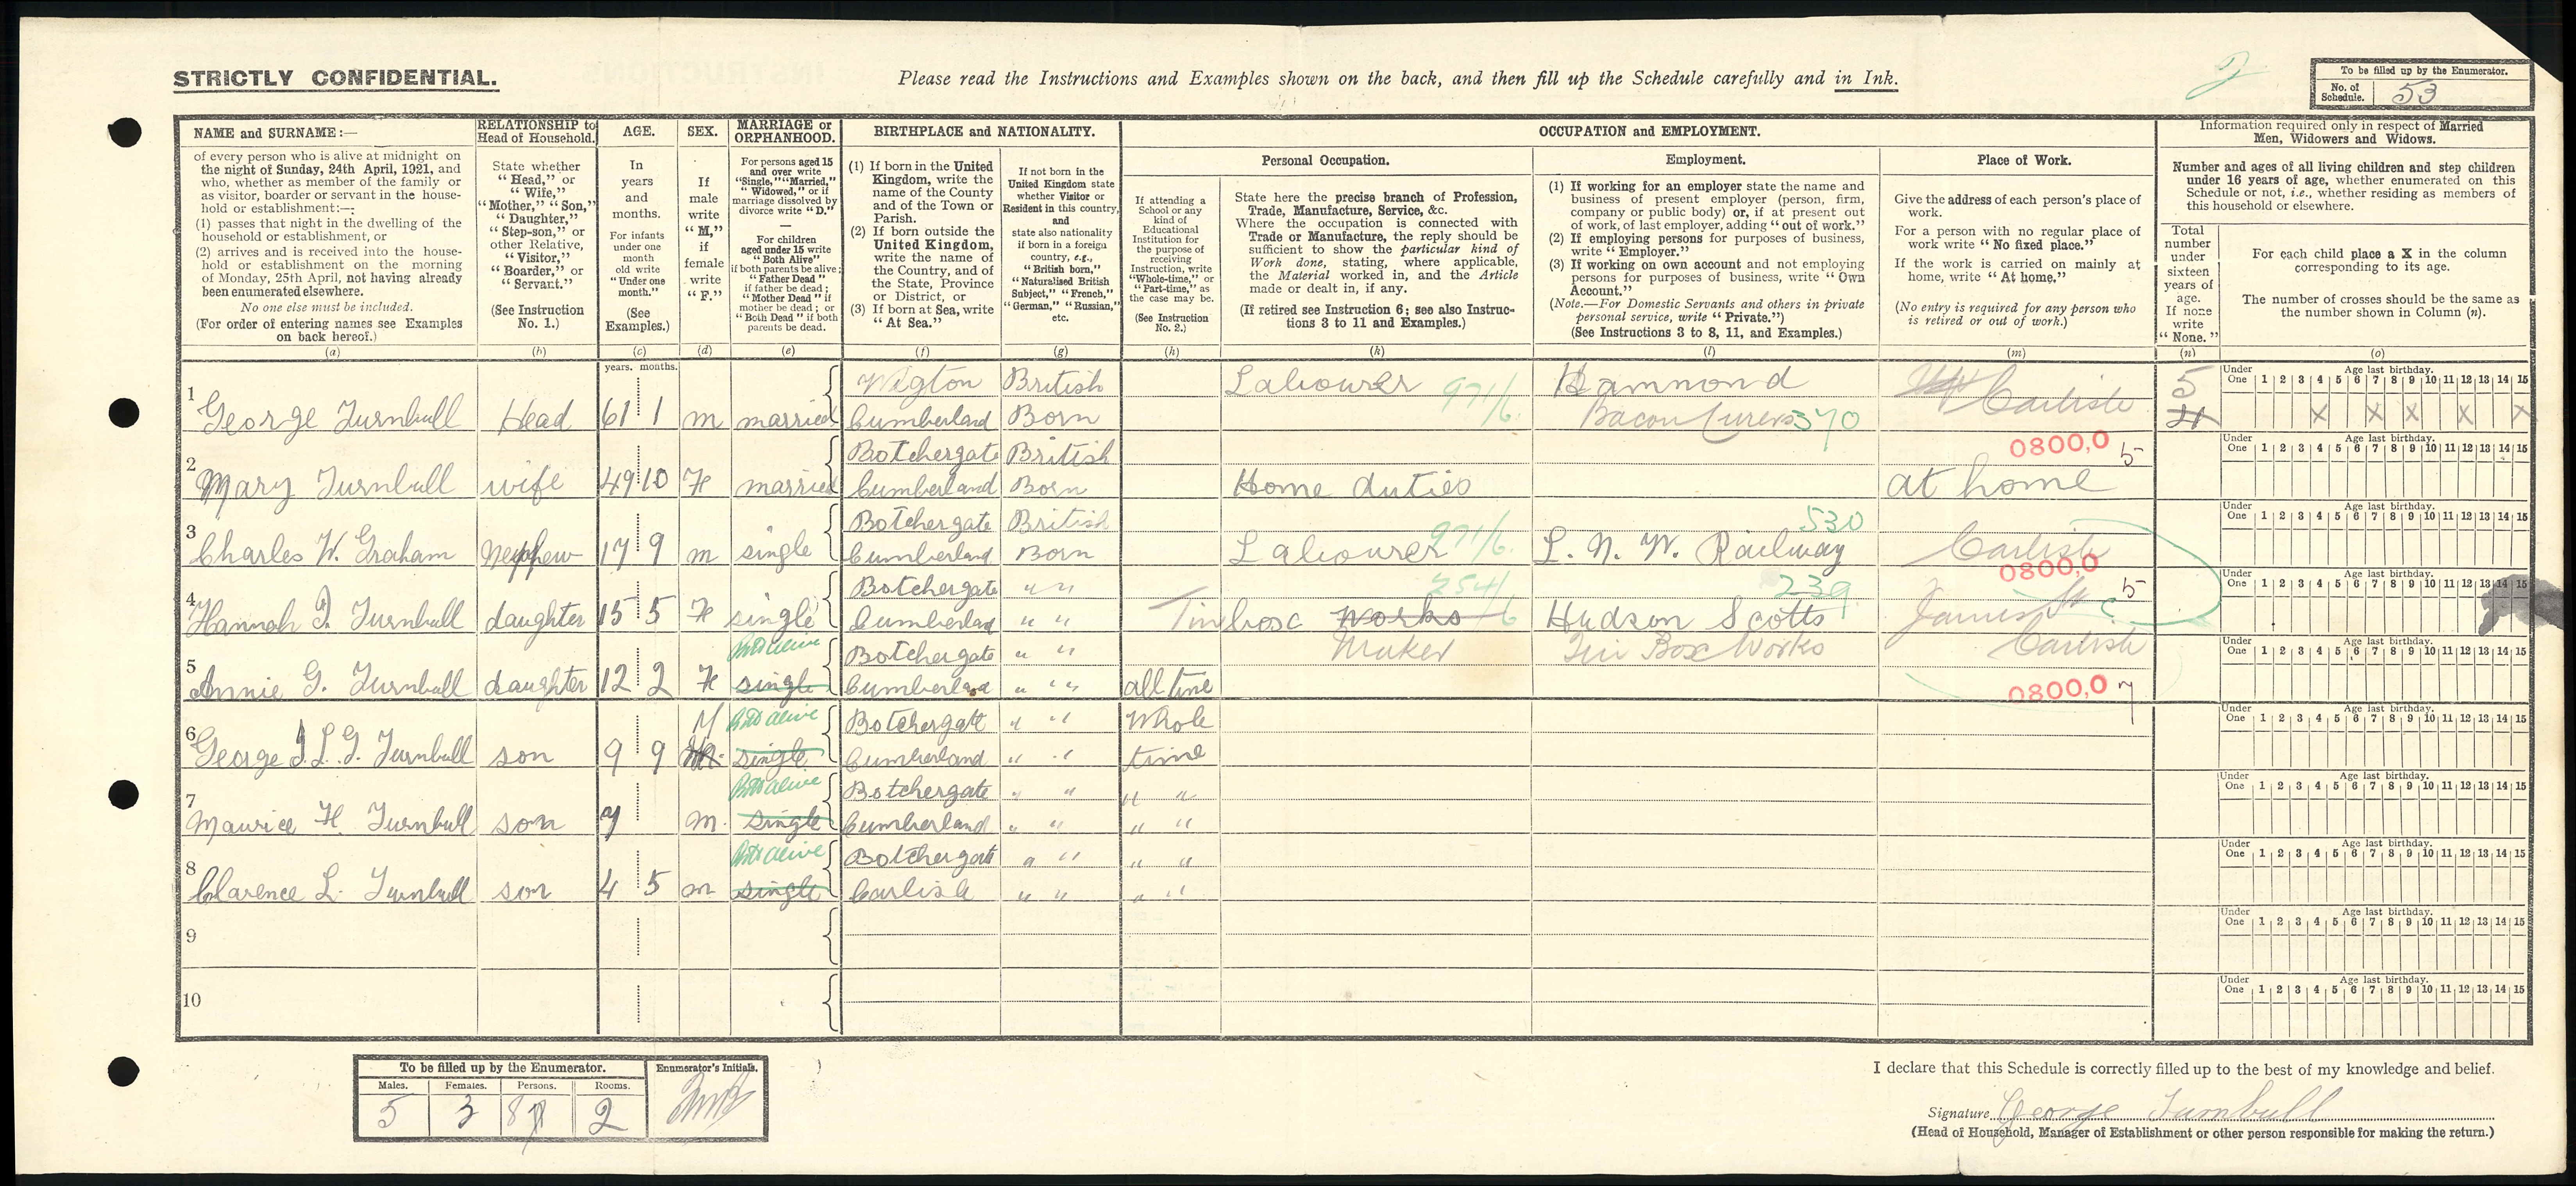 STRICTLY CONFIDENTIAL.
Please read the Instructions and Examples shown on the back, and then fill up the Schedule carefully and in Ink.
2
To be filled up by the Enumerator.
No. of Schedule. 53
NAME and SURNAME:—
of every person who is alive at midnight on
the night of Sunday, 24th April, 1921, and
who, whether as member of the family or
as visitor, boarder or servant in the house-
hold or establishment:—
(1) passes that night in the dwelling of the
household or establishment, or
(2) arrives and is received into the house-
hold or establishment on the morning
of Monday, 25th April, not having already
been enumerated elsewhere.
No one else must be included.
(For order of entering names see Examples
on back hereof.)
(a)
RELATIONSHIP to
Head of Household.
State whether
"Head," or
"Wife,"
"Mother," "Son,"
"Daughter,"
"Step-son," or
other Relative,
"Visitor,"
"Boarder," or
"Servant."
(See Instruction
No. 1.)
(b)
AGE.
In
years
and
months.
For infants
under one
month
old write
"Under one
month."
(See
Examples.)
(c)
years. months.
SEX.
If
male
write
"M,"
if
female
write
"F."
(d)
MARRIAGE or
ORPHANHOOD.
For persons aged 15
and over write
"Single," "Married,"
"Widowed," or if
marriage dissolved by
divorce write "D."
For children
aged under 15 write
"Both Alive"
if both parents be alive;
"Father Dead"
if father be dead;
"Mother Dead" if
mother be dead; or
"Both Dead" if both
parents be dead.
(e)
BIRTHPLACE and NATIONALITY.
(1) If born in the United
Kingdom, write the
name of the County
and of the Town or
Parish.
(2) If born outside the
United Kingdom,
write the name of
the Country, and of
the State, Province
or District, or
(3) If born at Sea, write
"At Sea."
(f)
If not born in the
United Kingdom state
whether Visitor or
Resident in this country,
and
state also nationality
if born in a foreign
country, e.g.,
"British born,"
"Naturalised British
Subject," "French,"
"German," "Russian,"
etc.
(g)
OCCUPATION and EMPLOYMENT.
If attending a
School or any
kind of
Educational
Institution for
the purpose of
receiving
Instruction, write
"Whole-time," or
"Part-time," as
the case may be.
(See Instruction
No. 2.)
(h)
Personal Occupation.
State here the precise branch of Profession,
Trade, Manufacture, Service, &c.
Where the occupation is connected with
Trade or Manufacture, the reply should be
sufficient to show the particular kind of
Work done, stating, where applicable,
the Material worked in, and the Article
made or dealt in, if any.
(If retired see Instruction 6; see also Instruc-
tions 3 to 11 and Examples.)
(k)
Employment.
(1) If working for an employer state the name and
business of present employer (person, firm,
company or public body) or, if at present out
of work, of last employer, adding "out of work."
(2) If employing persons for purposes of business,
write "Employer."
(3) If working on own account and not employing
persons for purposes of business, write "Own
Account."
(Note.—For Domestic Servants and others in private
personal service, write "Private.")
(See Instructions 3 to 8, 11, and Examples.)
(l)
Place of Work.
Give the address of each person's place of
work.
For a person with no regular place of
work write "No fixed place."
If the work is carried on mainly at
home, write "At home."
(No entry is required for any person who
is retired or out of work.)
(m)
Information required only in respect of Married
Men, Widowers and Widows.
Number and ages of all living children and step children
under 16 years of age, whether enumerated on this
Schedule or not, i.e., whether residing as members of
this household or elsewhere.
Total
number
under
sixteen
years of
age.
If none
write
"None."
(n)
For each child place a X in the column
corresponding to its age.
The number of crosses should be the same as
the number shown in Column (n).
(o)
Under One Age last birthday. 1 2 3 4 5 6 7 8 9 10 11 12 13 14 15
1 George Turnbull Head 61 1 m married Wigton Cumberland British Born Labourer 971/6 Hammond Bacon Curers 370 Carlisle 5 X X X X X
0800,0 5
2 Mary Turnbull wife 49 10 F married Botchergate Cumberland British Born Home duties at home
Under One Age last birthday. 1 2 3 4 5 6 7 8 9 10 11 12 13 14 15
3 Charles W. Graham Nephew 17 9 m single Botchergate Cumberland British Born Labourer 971/6. L. N. W. Railway 530 Carlisle
Under One Age last birthday. 1 2 3 4 5 6 7 8 9 10 11 12 13 14 15
0800,0 5
4 Hannah J. Turnbull daughter 15 5 F single Botchergate Cumberland " " " " Tinbox works Maker 254/6 Hudson Scotts Tin Box Works 239 James St Carlisle
Under One Age last birthday. 1 2 3 4 5 6 7 8 9 10 11 12 13 14 15
0800,0 7
5 Annie G. Turnbull daughter 12 2 F Both alive single Botchergate Cumberland " " " " all time
Under One Age last birthday. 1 2 3 4 5 6 7 8 9 10 11 12 13 14 15
6 George J. L. G. Turnbull son 9 9 M Both alive single Botchergate Cumberland " " " " Whole time
Under One Age last birthday. 1 2 3 4 5 6 7 8 9 10 11 12 13 14 15
7 Maurice H. Turnbull son 7 m. Both alive single Botchergate Cumberland " " " " " " " "
Under One Age last birthday. 1 2 3 4 5 6 7 8 9 10 11 12 13 14 15
8 Clarence L. Turnbull son 4 5 m Both alive single Botchergate Carlisle " " " " " " " "
Under One Age last birthday. 1 2 3 4 5 6 7 8 9 10 11 12 13 14 15
9
Under One Age last birthday. 1 2 3 4 5 6 7 8 9 10 11 12 13 14 15
10
Under One Age last birthday. 1 2 3 4 5 6 7 8 9 10 11 12 13 14 15
To be filled up by the Enumerator.
Males. Females. Persons. Rooms.
5 3 8 2
Enumerator's Initials.
I declare that this Schedule is correctly filled up to the best of my knowledge and belief.
Signature George Turnbull
(Head of Household, Manager of Establishment or other person responsible for making the return.)